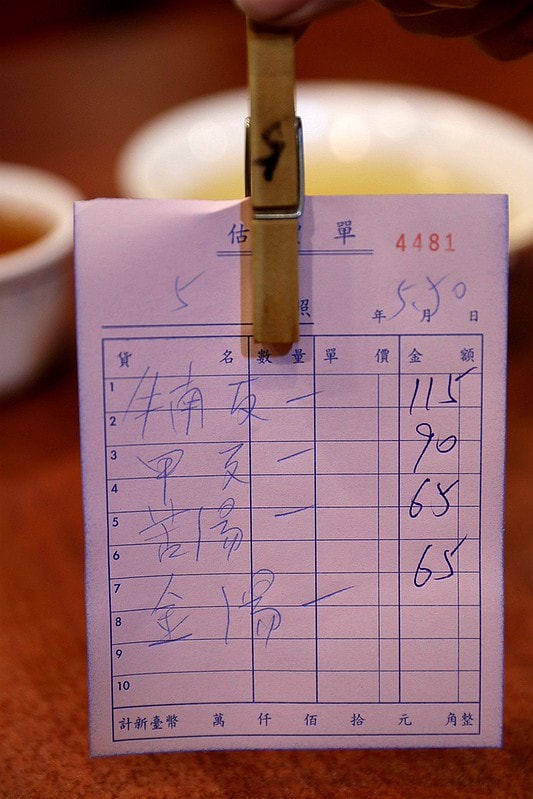 估 單
4481
5
照 年 5.30 月 日
貨 名 數 量 單 價 金 額
1
牛南 反 一 115
2
3
甲 反 一 90
4
5
苦湯 一 65
6
7
金湯 一 65
8
9
10
計新臺幣 萬 仟 佰 拾 元 角整